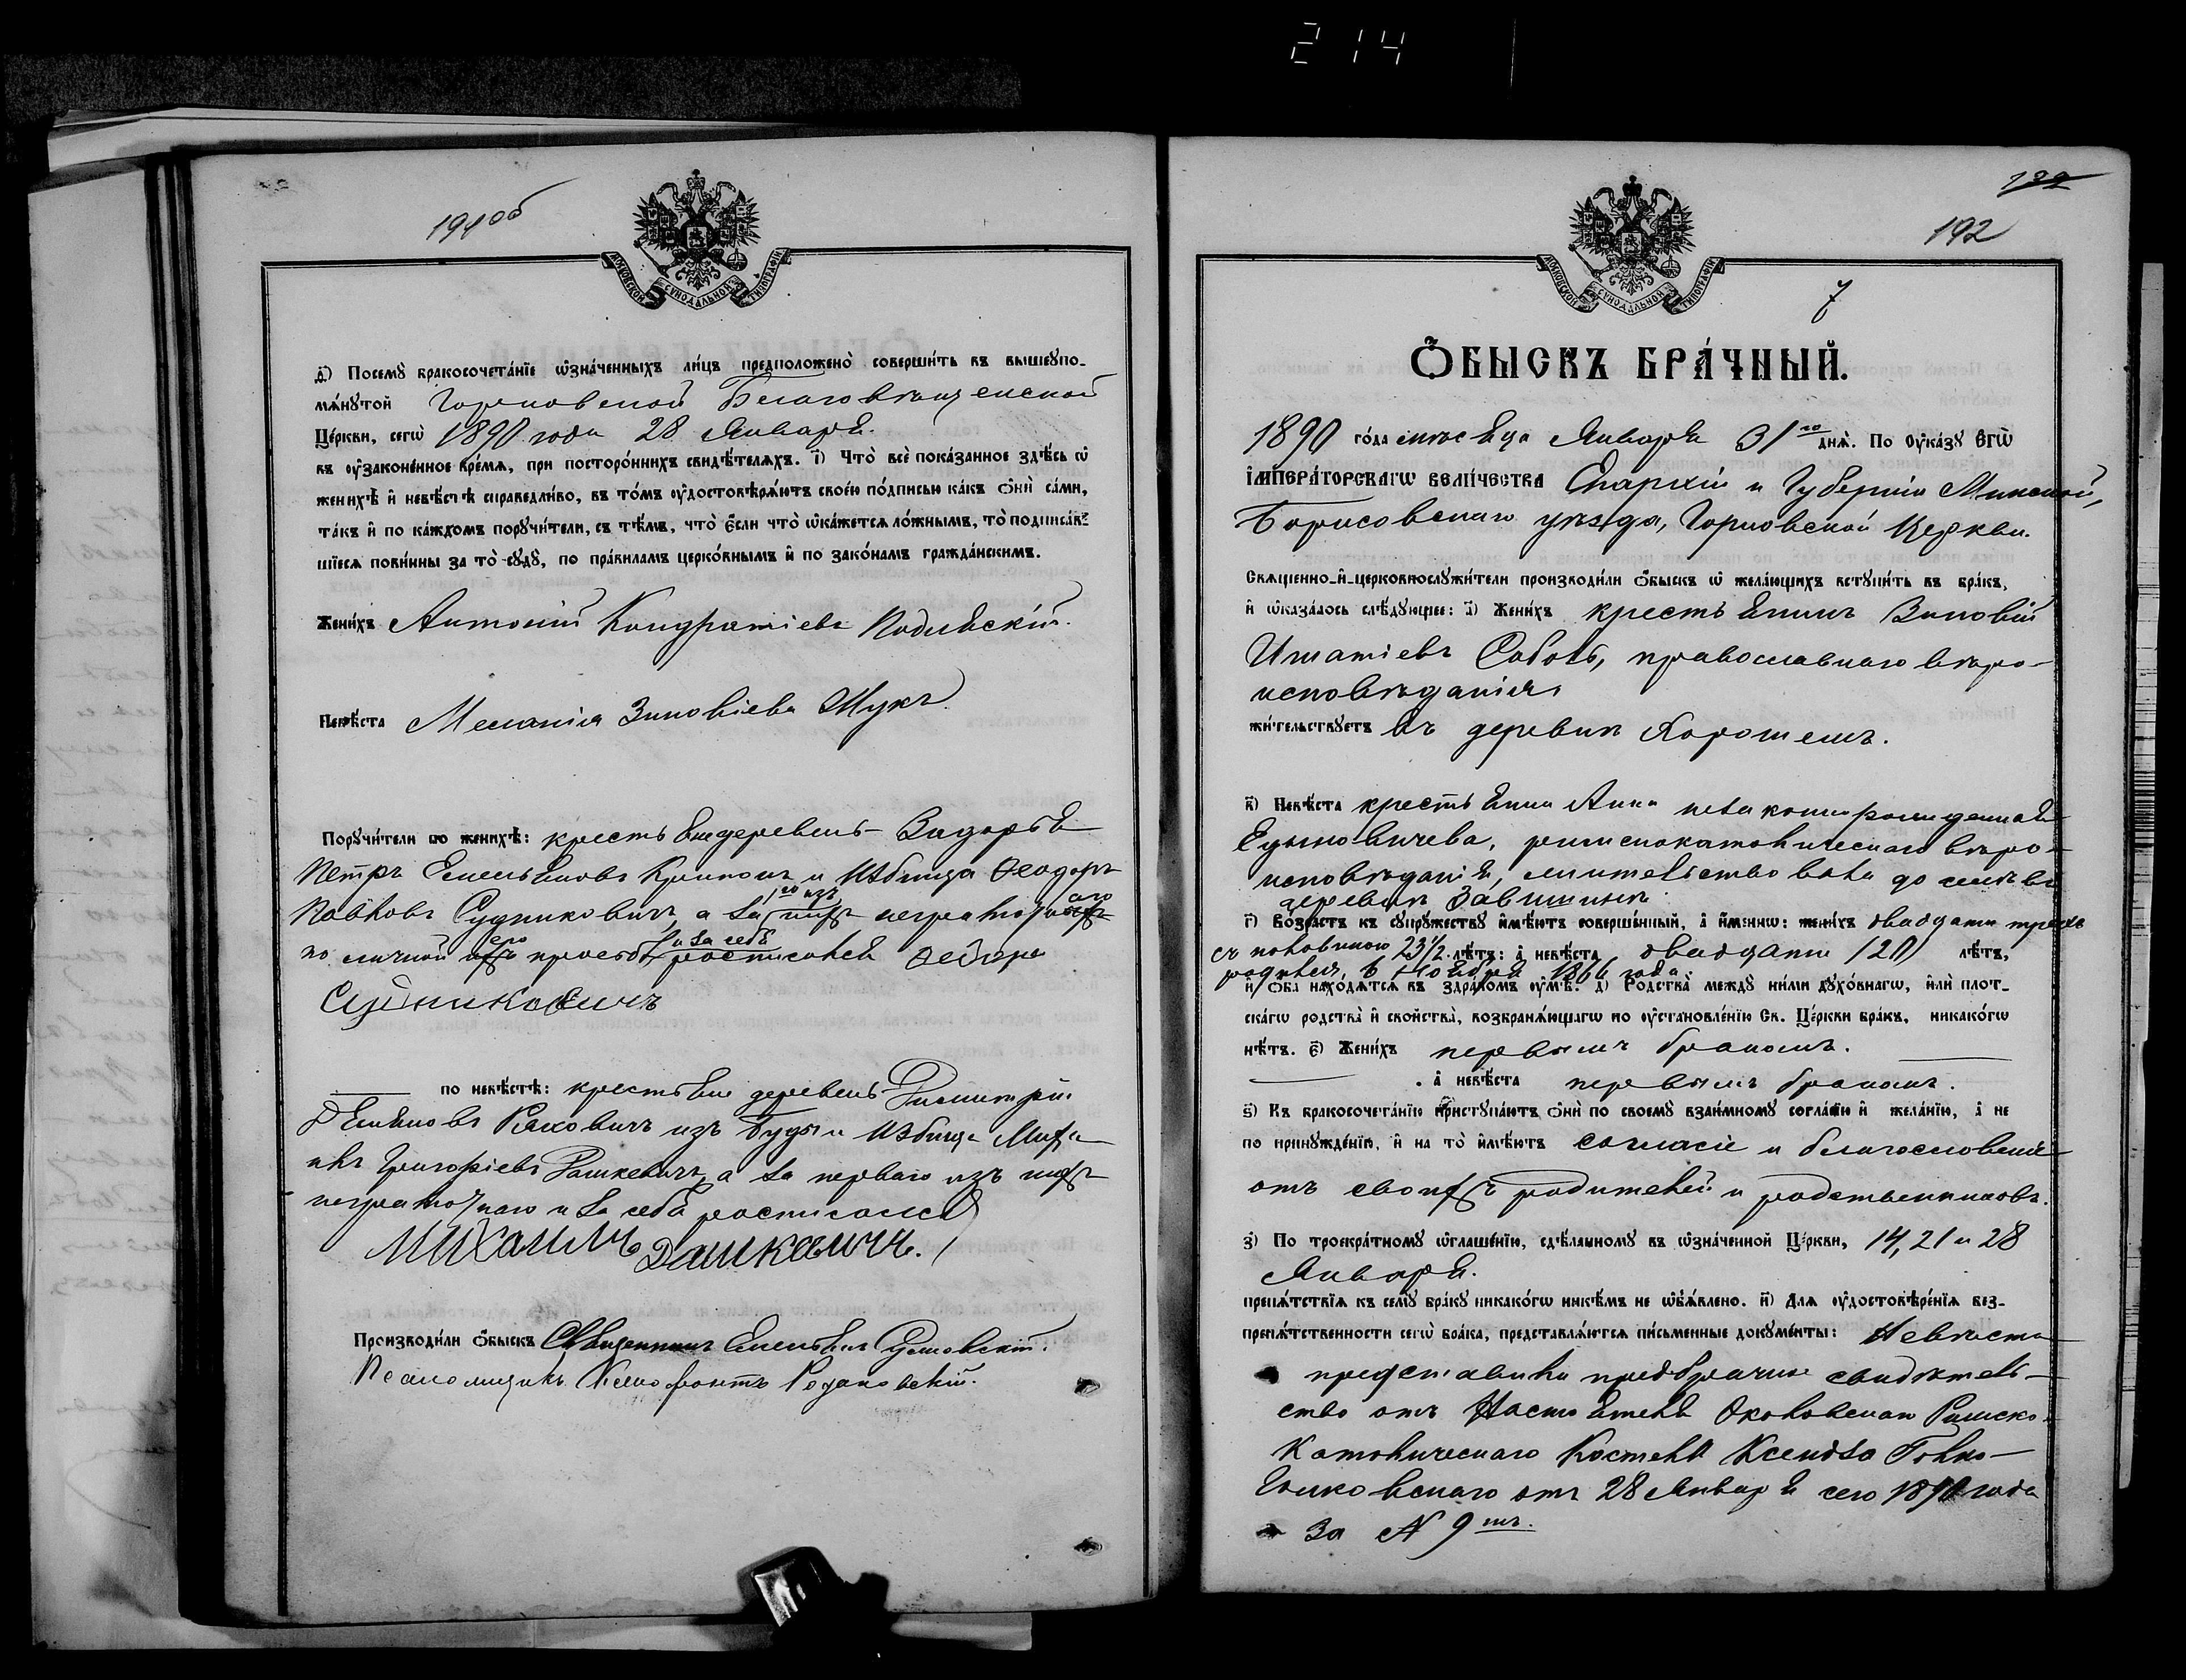 214
191 об
МОСКОВСКОЙ СѴНОДАЛЬНОЙ ТИПОГРАФІИ
д҃) Посемꙋ̀ бракосочета́нїе ѡ҆зна́ченныхъ ли́цъ предположено̀ соверши́ть въ вышеꙋпо-
мѧ́нꙋтой Горновской Благовѣщенской
Це́ркви, сегѡ̀ 1890 года 28 Января.
въ ᲂу҆законе́нное вре́мѧ, при посторо́ннихъ свидѣ́телѧхъ. і҃) Что̀ всѐ пока́занное здѣ́сь ѡ҆
женихѣ̀ и҆ невѣ́стѣ справедли́во, въ то́мъ ᲂу҆достовѣрѧ́ютъ свое́ю по́дписью ка́къ ѻ҆нѝ са́ми,
та́къ и҆ по ка́ждомъ порꙋчи́тели, съ тѣ́мъ, что̀ є҆́сли что̀ ѡ҆ка́жетсѧ ло́жнымъ, то̀ подписа́в-
шїесѧ пови́нны за то̀ сꙋдꙋ̀, по пра́виламъ церко́внымъ и҆ по зако́намъ гражда́нскимъ.
Жени́хъ Антоній Кондратіевъ Подлѣскій.
Невѣ́ста Меланія Зиновіева Жукъ
Порꙋчи́тели по женихѣ̀: крестьяне деревень Загорья
Петръ Емельяновъ и Избища Ѳеодоръ
Павловъ Судниковичъ, а за неграмотнаго
по личной его просьбѣ и за себя росписался Ѳедоръ
Судниковичъ
по невѣ́стѣ: крестьяне деревень
Раковичъ изъ Буды и Избища Миха-
илъ Григоріевъ Дашкевичъ, а за перваго изъ нихъ
неграмотнаго и за себя росписался
Михаилъ Дашкевичъ.
Производи́ли ѻ҆́быскъ Священникъ Емельянъ
Псаломщикъ Ксенофонтъ
192
МОСКОВСКОЙ СѴНОДАЛЬНОЙ ТИПОГРАФІИ
7
Ѻ҆́БЫСКЪ БРА́ЧНЫЙ.
1890 го́да мѣсяца Января 31го днѧ̀. По ᲂу҆ка́зꙋ Є҆ГѠ̀
І҆МПЕРА́ТОРСКАГѠ ВЕЛИ́ЧЕСТВА Епархіи и Губерніи Минской,
Борисовскаго уѣзда, Горновской Церкви.
Свѧще́нно-и҆-церковнослꙋжи́тели производи́ли ѻ҆́быскъ ѡ҆ жела́ющихъ встꙋпи́ть въ бра́къ,
и҆ ѡ҆каза́лось слѣ́дꙋющее: а҃) Жени́хъ крестьянинъ Зиновій
Игнатіевъ Соболь, православнаго вѣро-
исповѣданія
жи́тельствꙋетъ въ деревнѣ
в҃) Невѣ́ста крестьянка Анна
римскокатолическаго вѣро-
исповѣданія, жительствовала до сихъ въ
деревнѣ
г҃) Во́зрастъ къ сꙋпрꙋ́жествꙋ и҆мѣ́ютъ соверше́нный, а҆ и҆́меннѡ: жени́хъ двадцати трехъ
съ половиною 23½ лѣ́тъ: а҆ невѣ́ста двадцати /20/ лѣ́тъ,
родился 6 Ноября 1866 года
и҆ ѻ҆́ба нахо́дѧтсѧ въ здра́вомъ ᲂу҆мѣ̀. д҃) Родства̀ междꙋ ни́ми дꙋхо́внагѡ, и҆лѝ плот-
ска́гѡ родства̀ и҆ свойства̀, возбранѧ́ющагѡ по ᲂу҆становле́нїю Св. Це́ркви бра́къ, никако́гѡ
нѣ́тъ. є҃) Жени́хъ первымъ бракомъ.
а҆ невѣ́ста первымъ бракомъ.
ѕ҃) Къ бракосочета́нїю пристꙋпа́ютъ ѻ҆нѝ по своемꙋ̀ взаи́мномꙋ согла́сїю и҆ жела́нїю, а҆ не
по принꙋжде́нїю, и҆ на то̀ и҆мѣ́ютъ согласіе и благословеніе
отъ своихъ родителей и родственниковъ.
з҃) По троекра́тномꙋ ѡ҆глаше́нїю, сдѣ́ланномꙋ въ ѡ҆зна́ченной Це́ркви, 14, 21 и 28
Января.
препѧ́тствїѧ къ семꙋ̀ бра́кꙋ никако́гѡ никѣ́мъ не ѡ҆б̾ѧ́влено. и҃) Длѧ ᲂу҆достовѣре́нїѧ без-
препѧ́тственности сегѡ̀ бра́ка, представлѧ́ютсѧ пи́сьменные докꙋме́нты: Невѣста
представила предбрачное свидѣтель-
ство отъ Настоятеля Околовскаго Римско-
Католическаго Костела Ксендза
отъ 28 Января сего 1890 года
за N 9мъ.